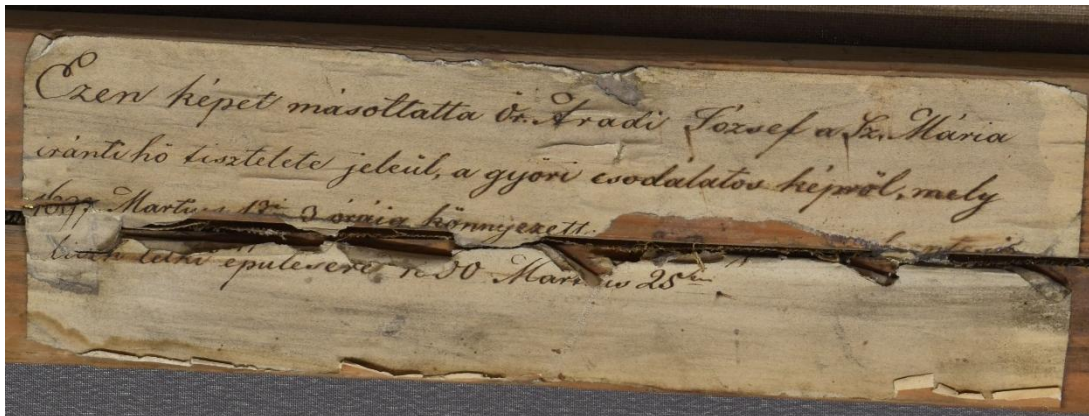 Ezen képet másoltatta Dr. Aradi József a Sz. Mária
iránti hő tisztelete jeleül, a győri csodálatos képről, mely
1697 Martius 17n 3 óráig könnyezett.
lelki épülésére Martius 25én